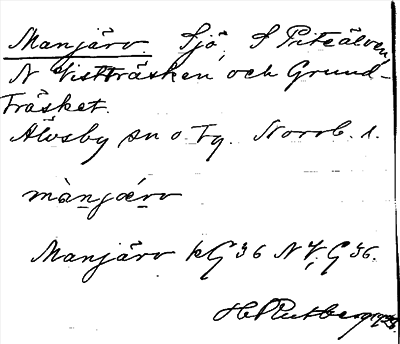 Manjärv. Sjö, S Piteälven,
N Vistträsken, och Grund-
träsket.
Älvsby sn o. Tg. Norrb. l.
mànjæ´rv
Manjärv kG 36 NV, G 36.
H.